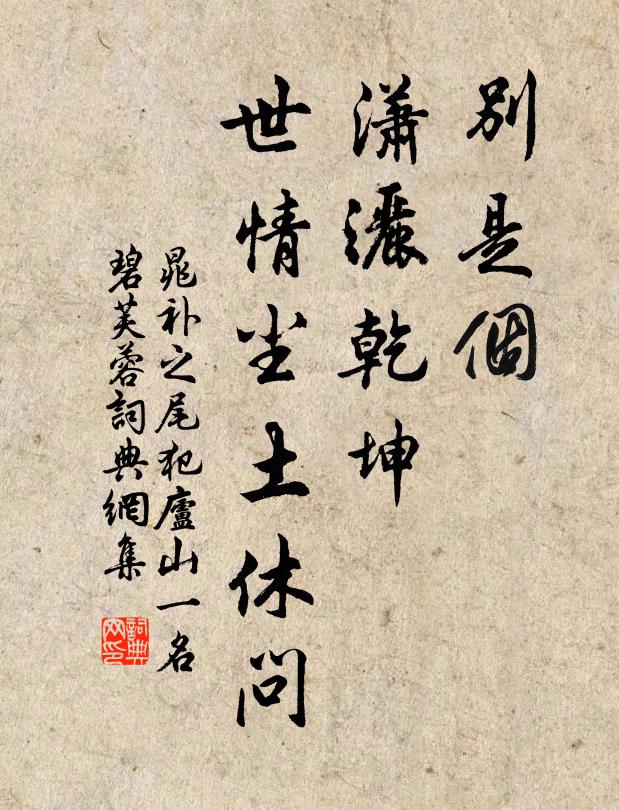 別是個
瀟灑乾坤
世情尘土休問
晁补之尾犯廬山一名
碧芙蓉詞典網集
詞典
网印